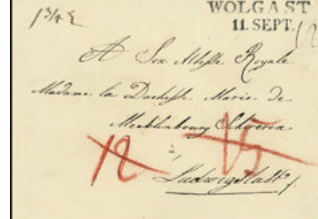 WOLGAST
11. SEPT.
A Son Altesse Royale
Madame la Duchesse Marie de
Mecklenbourg Schwerin
à
Ludwigslust
12 15